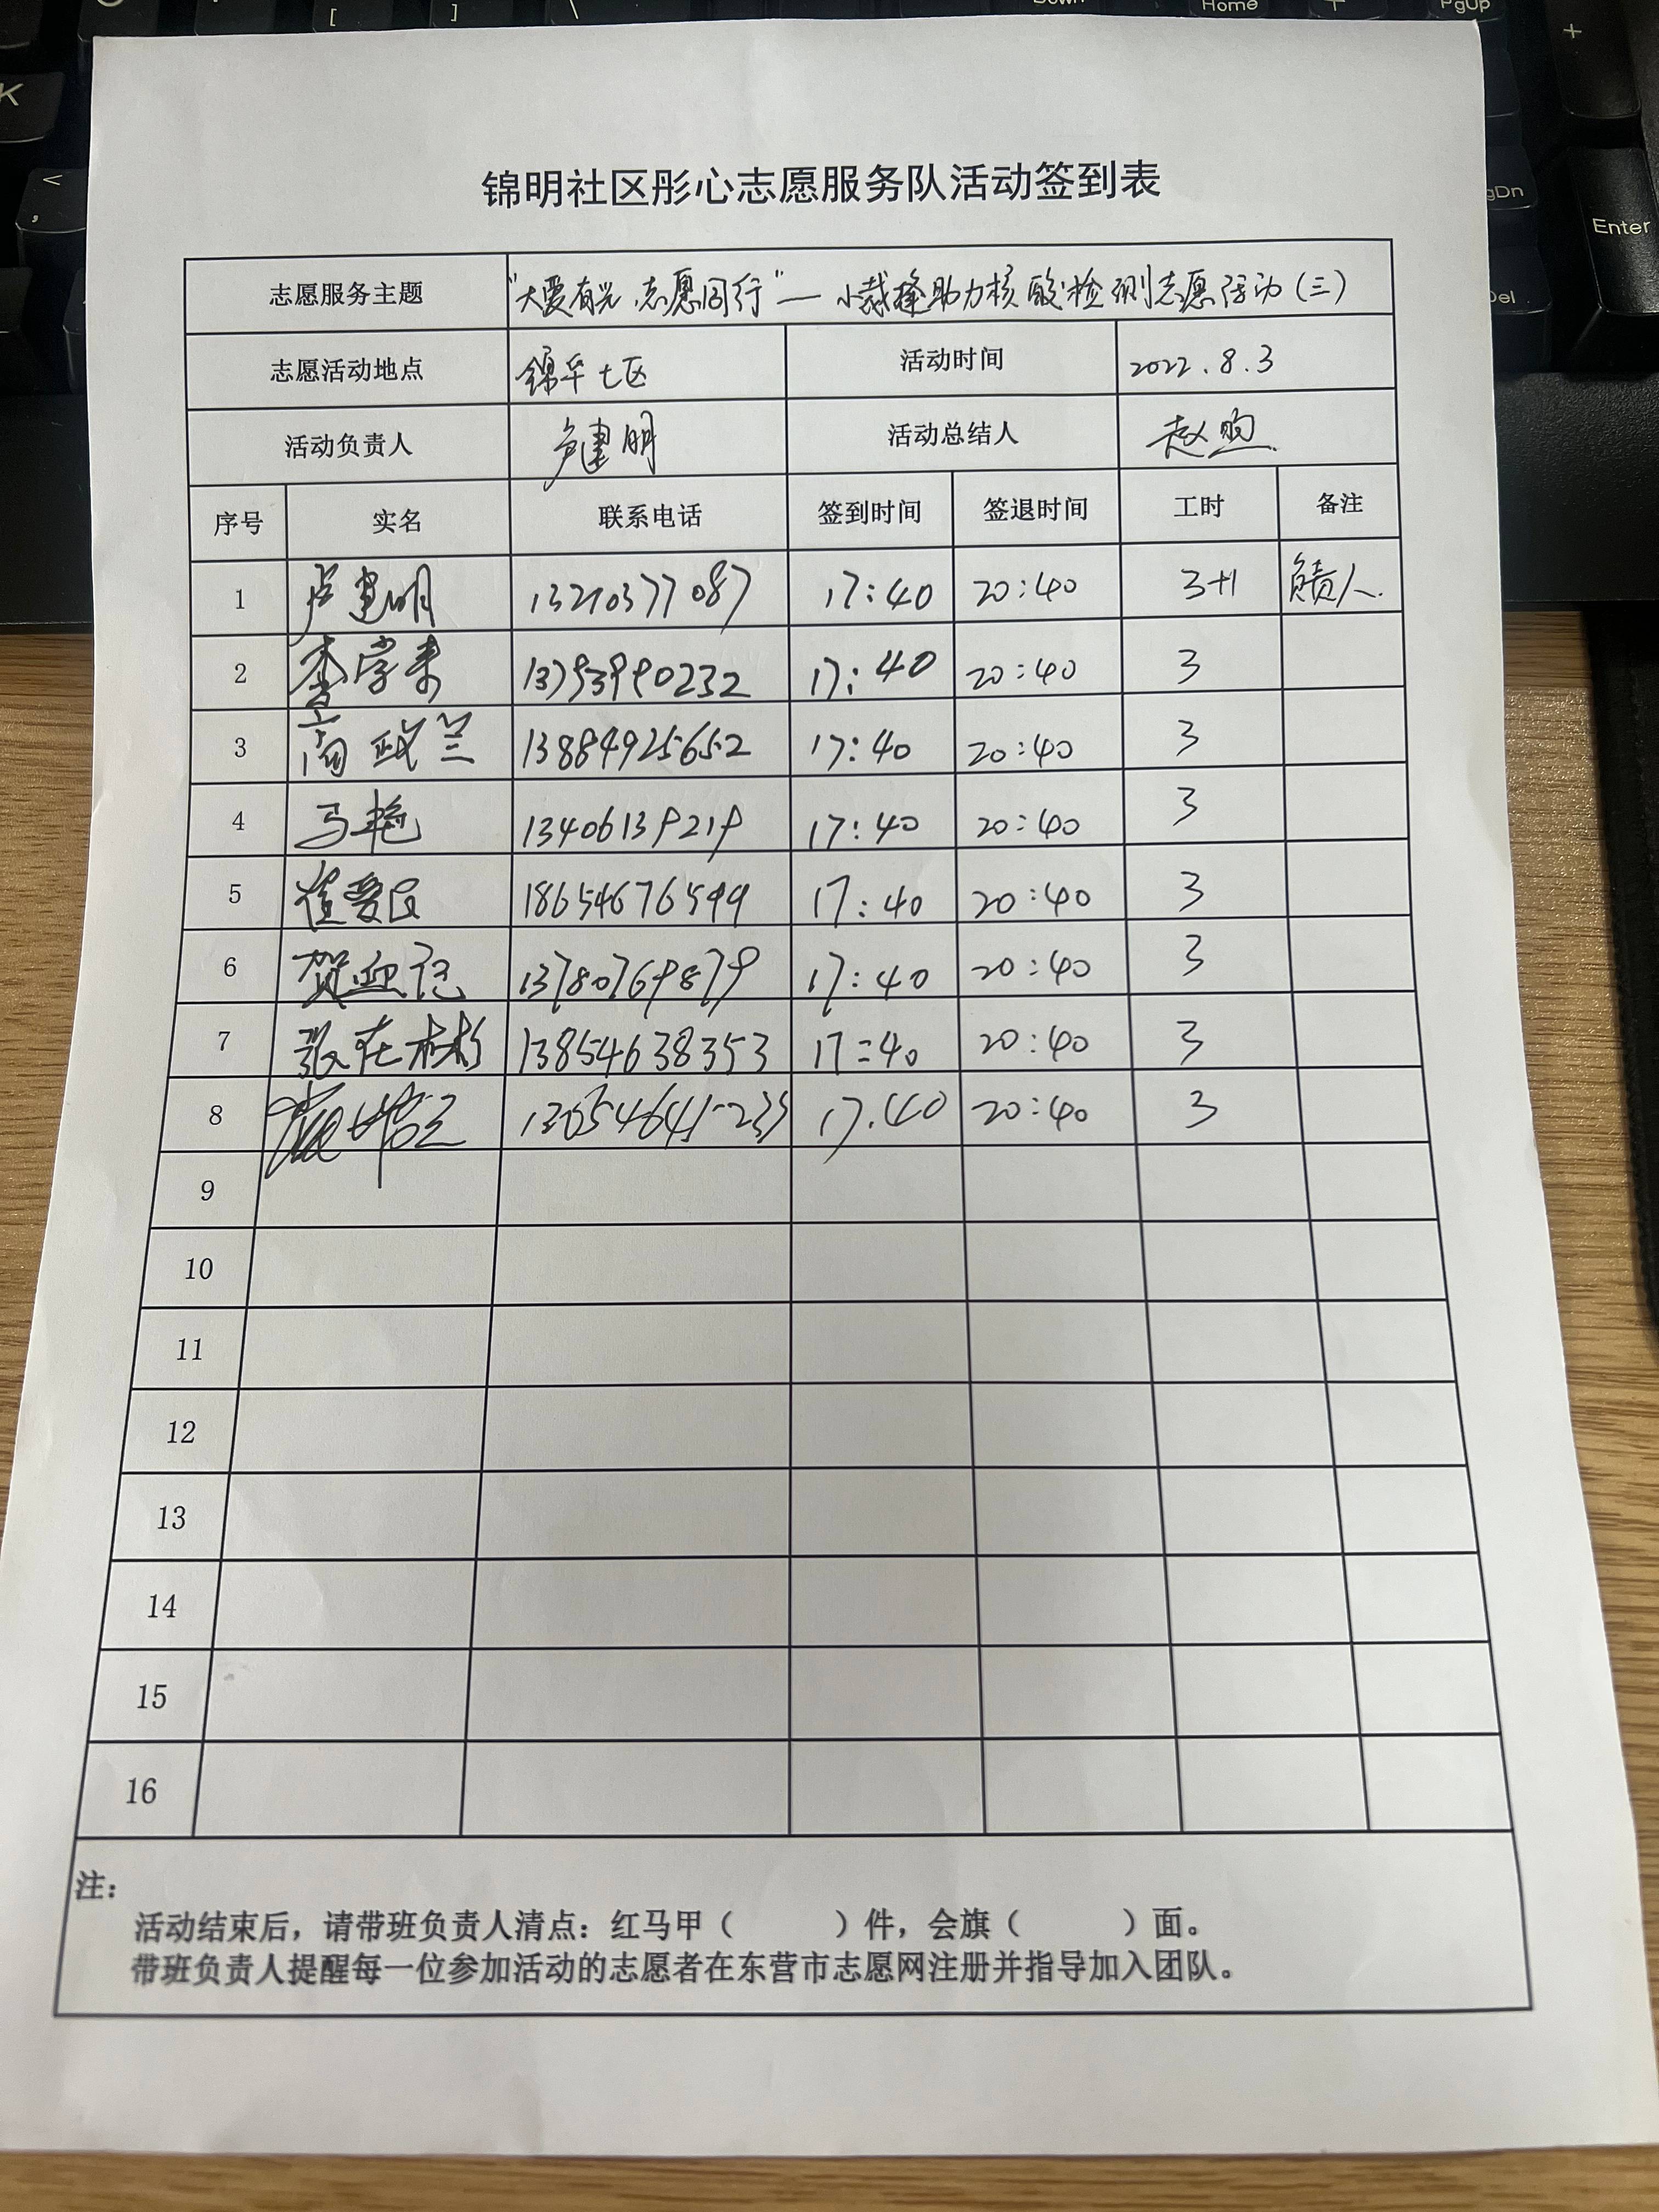 锦明社区彤心志愿服务队活动签到表
志愿服务主题 "大爱有光,志愿同行"— 小裁缝助力核酸检测志愿活动(三)
志愿活动地点 锦华七区 活动时间 2022.8.3
活动负责人 卢建明 活动总结人 赵煦
序号 实名 联系电话 签到时间 签退时间 工时 备注
1 卢建明 13210377087 17:40 20:40 3+1 负责人.
2 李学孝 13793990232 17:40 20:40 3
3 商政兰 13884925652 17:40 20:40 3
4 马艳 13406139219 17:40 20:40 3
5 崔爱民 18654676599 17:40 20:40 3
6 贺血记 13780769879 17:40 20:40 3
7 张在彬 13854638353 17:40 20:40 3
8 17.40 20:40 3
9
10
11
12
13
14
15
16
注:
活动结束后,请带班负责人清点:红马甲( )件,会旗( )面。
带班负责人提醒每一位参加活动的志愿者在东营市志愿网注册并指导加入团队。
K
<
,
[
]
\
Home
PgUp
+
Enter